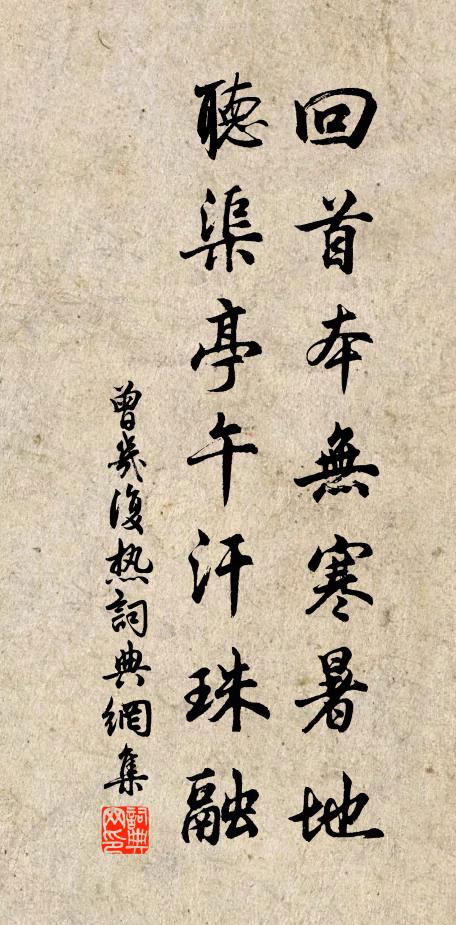 回首本無寒暑地
聽渠亭午汗珠融
曾幾復热詞典網集
詞典网印